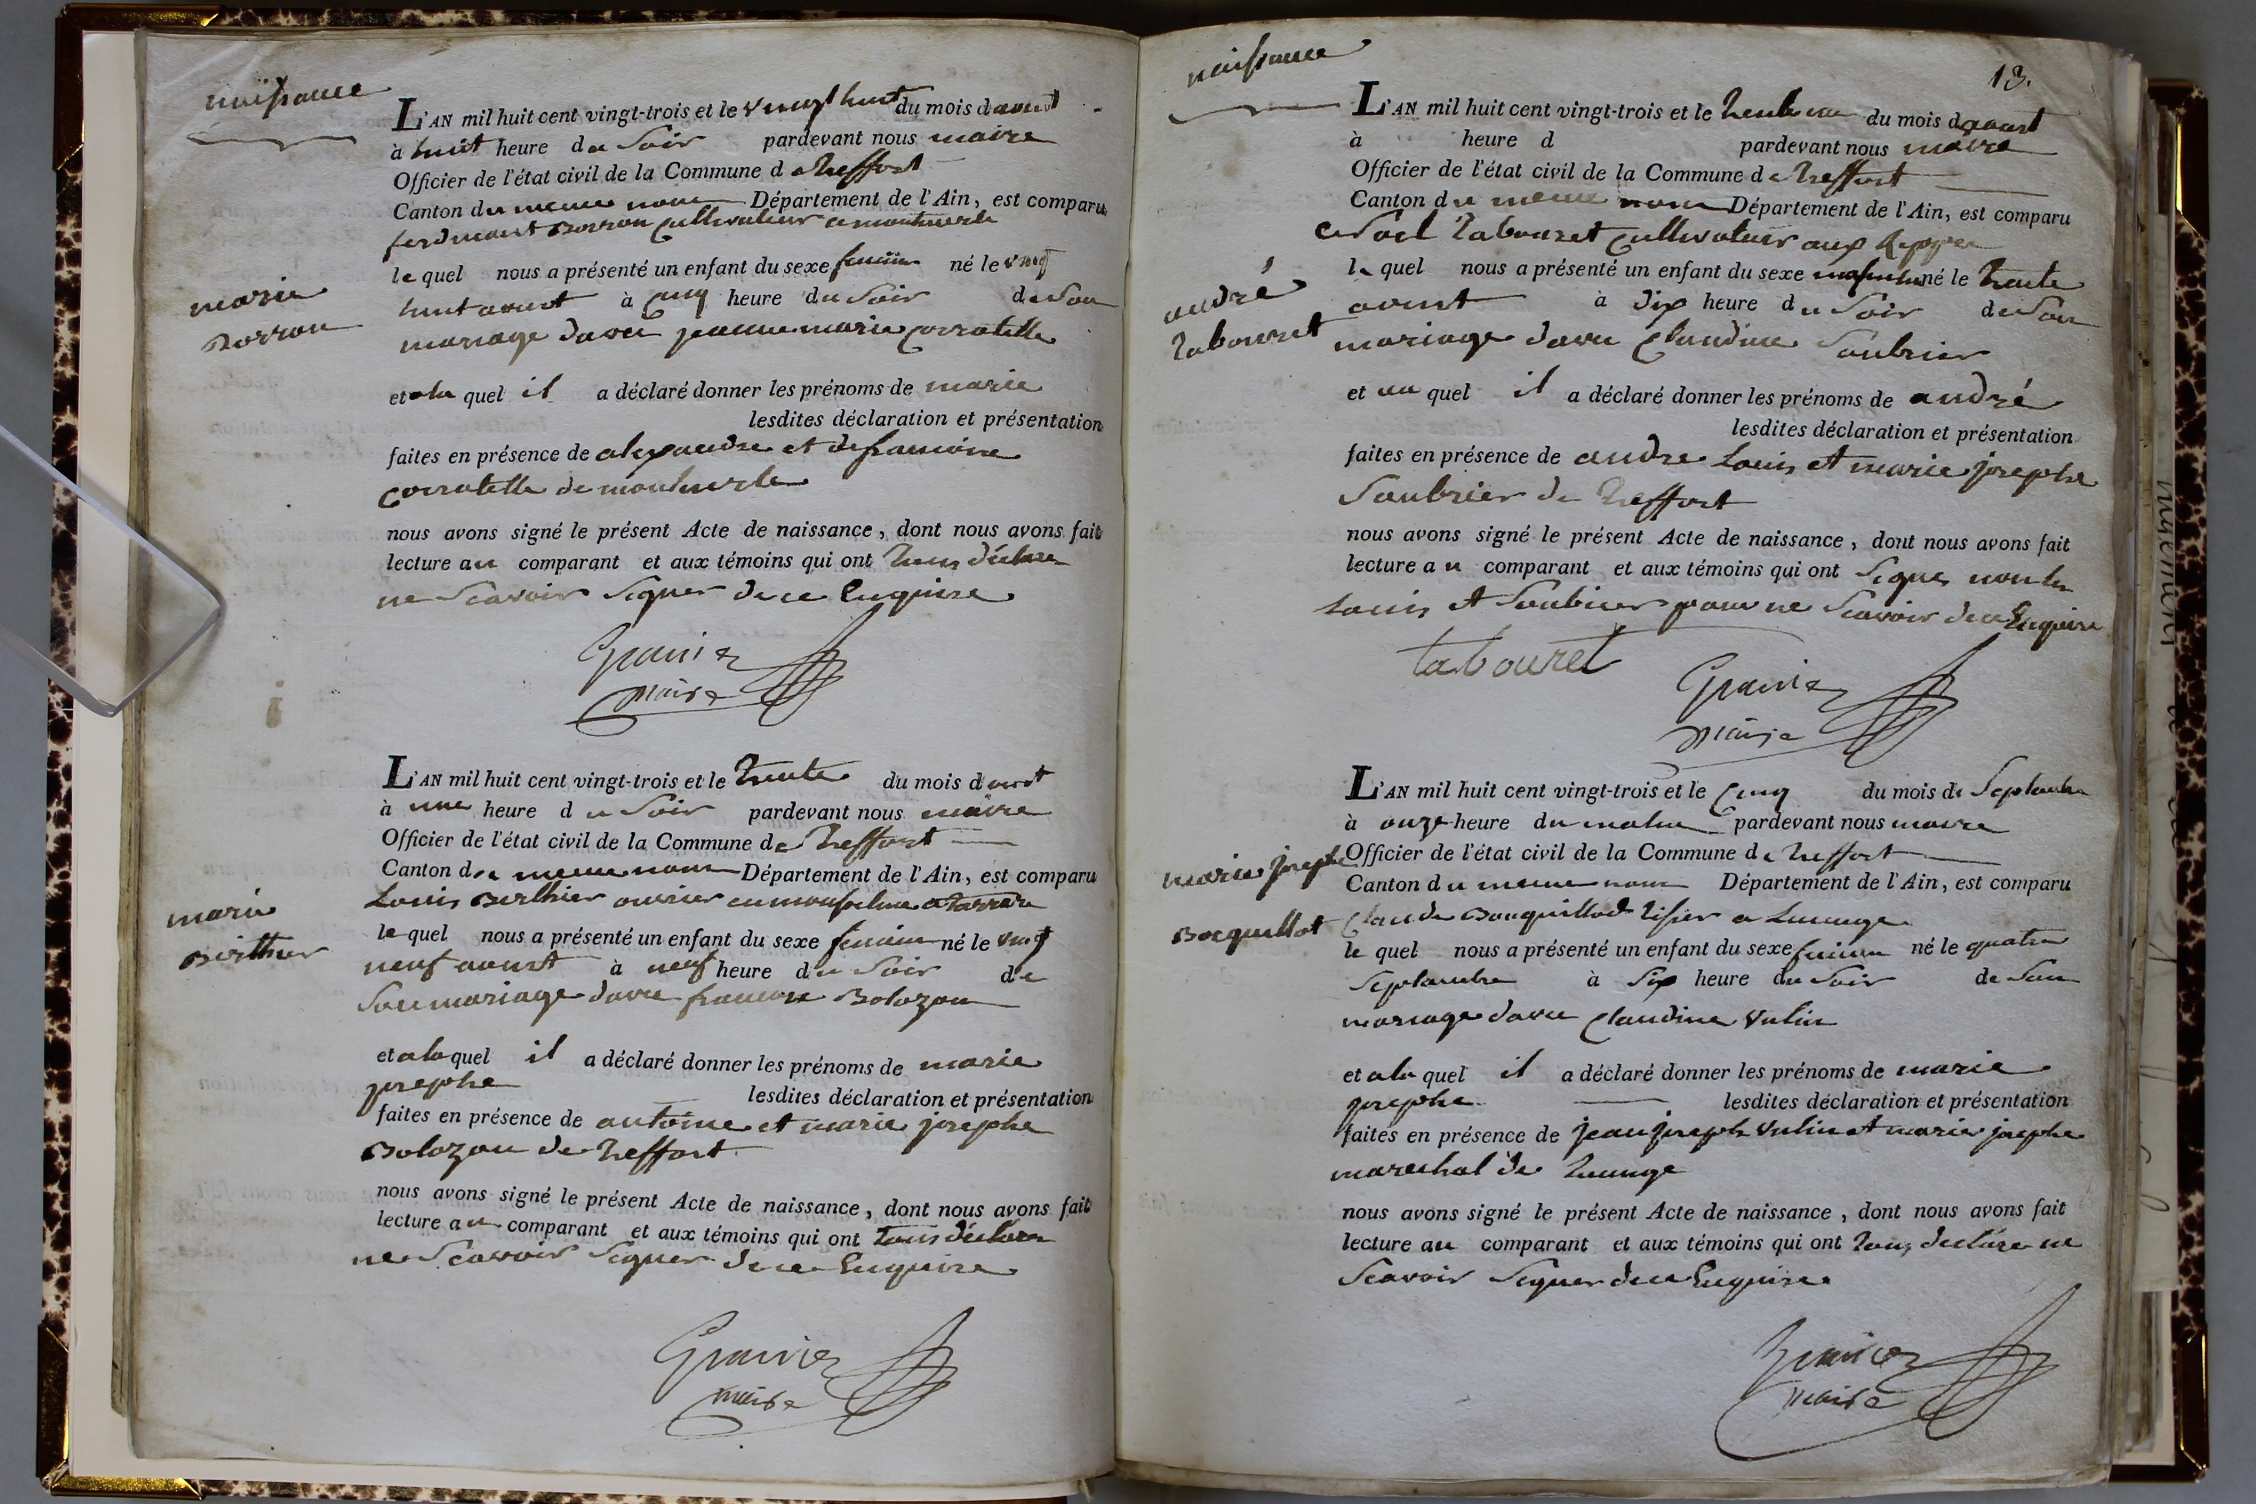 naissance
L'AN mil huit cent vingt-trois et le vingt huit du mois d aoust
à huit heure du Soir pardevant nous maire
Officier de l'état civil de la Commune de treffort
Canton du meme nom Département de l'Ain, est comparu
ferdinant Borron cultivateur a montmerle
le quel nous a présenté un enfant du sexe feminin né le vingt
marie
Borron
huit aoust à cinq heure du Soir de Son
mariage davec jeanne marie corratelle
et a la quel il a déclaré donner les prénoms de marie
lesdites déclaration et présentation
faites en présence de alexandre et de francoise
corratelle de montmerle
nous avons signé le présent Acte de naissance, dont nous avons fait
lecture au comparant et aux témoins qui ont tous déclare
ne Scavoir Signer de ce Enquise
Granier
maire
L'AN mil huit cent vingt-trois et le trente du mois d aout
à une heure du Soir pardevant nous maire
Officier de l'état civil de la Commune de treffort
Canton du meme nom Département de l'Ain, est comparu
Louis Berthier ouvrier en mousseline a tarrare
marie
Berthier
le quel nous a présenté un enfant du sexe feminin né le vingt
neuf aoust à neuf heure du Soir de
Son mariage davec francoise Bolozon
et a la quel il a déclaré donner les prénoms de marie
josephe lesdites déclaration et présentation
faites en présence de antoine et marie josephe
Bolozon de treffort
nous avons signé le présent Acte de naissance, dont nous avons fait
lecture au comparant et aux témoins qui ont tous déclare
ne Scavoir Signer de ce Enquise
Granier
maire
naissance
13.
L'AN mil huit cent vingt-trois et le trente un du mois d aoust
à heure d pardevant nous maire
Officier de l'état civil de la Commune de treffort
Canton du meme nom Département de l'Ain, est comparu
Noel tabouret cultivateur aux
le quel nous a présenté un enfant du sexe masculin né le trente
andré
tabouret
aoust à dix heure du Soir de Son
mariage davec claudine Soubrier
et au quel il a déclaré donner les prénoms de andré
lesdites déclaration et présentation
faites en présence de andre Louis et marie josephe
Soubrier de treffort
nous avons signé le présent Acte de naissance, dont nous avons fait
lecture au comparant et aux témoins qui ont Signes non les
Louis et Soubrier pour ne Scavoir de ce Enquise
tabouret
Granier
maire
L'AN mil huit cent vingt-trois et le cinq du mois de Septembre
à onze heure du matin pardevant nous maire
Officier de l'état civil de la Commune de treffort
marie josephe
Bocquillot
Canton du meme nom Département de l'Ain, est comparu
Claude Bouquillod tisier a
le quel nous a présenté un enfant du sexe feminin né le quatre
Septembre à Six heure du Soir de Son
mariage davec claudine vulin
et a la quel il a déclaré donner les prénoms de marie
josephe lesdites déclaration et présentation
faites en présence de jean joseph vulin et marie josephe
marechal de
nous avons signé le présent Acte de naissance, dont nous avons fait
lecture au comparant et aux témoins qui ont tous déclare ne
Scavoir Signer de ce Enquise
Granier
maire